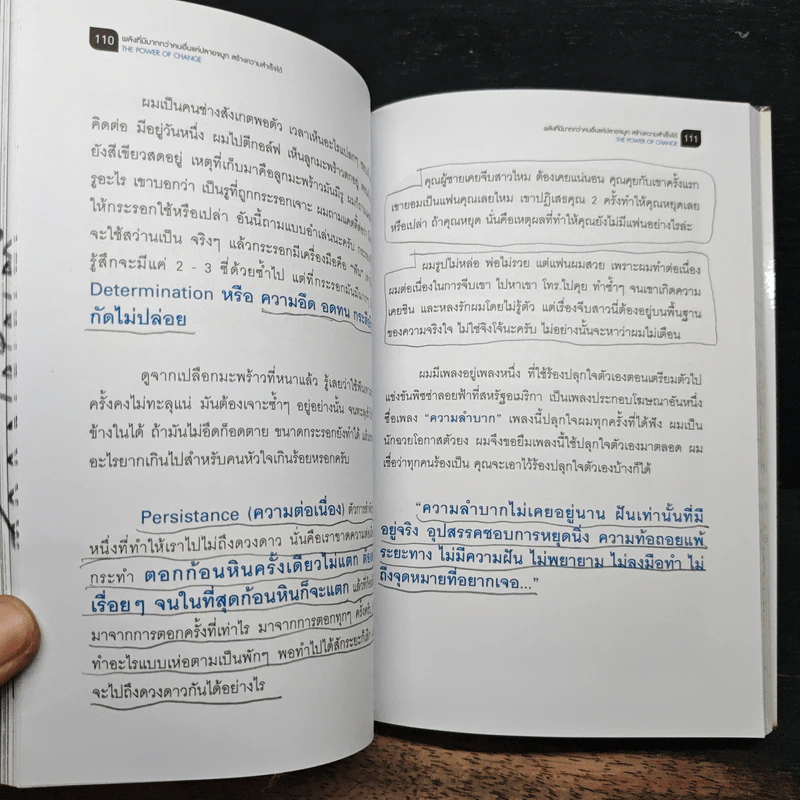 110
พลังที่มีมากกว่าคนอื่นแค่ปลายจมูก สร้างความสำเร็จได้
THE POWER OF CHANGE
ผมเป็นคนช่างสังเกตพอตัว เวลาเห็นอะไรแปลกๆ
คิดต่อ มีอยู่วันหนึ่ง ผมไปตีกอล์ฟ เห็นลูกมะพร้าวตกอยู่
ยังสีเขียวสดอยู่ เหตุที่เก็บมาคือลูกมะพร้าวมันมีรู
รูอะไร เขาบอกว่า เป็นรูที่ถูกกระรอกเจาะ
ให้กระรอกใช้หรือเปล่า อันนี้ถามแบบอำเล่นนะครับ
จะใช้สว่านเป็น จริงๆ แล้วกระรอกมีเครื่องมือคือ "ฟัน"
รู้สึกจะมีแค่ 2 - 3 ซี่ด้วยซ้ำไป แต่ที่กระรอกมันมี
Determination หรือ ความอึด อดทน
กัดไม่ปล่อย
ดูจากเปลือกมะพร้าวที่หนาแล้ว รู้เลยว่าใช้ฟัน
ครั้งคงไม่ทะลุแน่ มันต้องเจาะซ้ำๆ อยู่อย่างนั้น
ข้างในได้ ถ้ามันไม่อึดก็อดตาย ขนาดกระรอกยังทำได้
อะไรยากเกินไปสำหรับคนหัวใจเกินร้อยหรอกครับ
Persistance (ความต่อเนื่อง)
หนึ่งที่ทำให้เราไปไม่ถึงดวงดาว นั่นคือเราขาดความ
กระทำ ตอกก้อนหินครั้งเดียวไม่แตก
เรื่อยๆ จนในที่สุดก้อนหินก็จะแตก
มาจากการตอกครั้งที่เท่าไร มาจากการตอกทุกๆ
ทำอะไรแบบเห่อตามเป็นพักๆ พอทำไปได้สักระยะก็
จะไปถึงดวงดาวกันได้อย่างไร
พลังที่มีมากกว่าคนอื่นแค่ปลายจมูก สร้างความสำเร็จได้
THE POWER OF CHANGE
111
คุณผู้ชายเคยจีบสาวไหม ต้องเคยแน่นอน คุณคุยกับเขาครั้งแรก
เขายอมเป็นแฟนคุณเลยไหม เขาปฏิเสธคุณ 2 ครั้งทำให้คุณหยุดเลย
หรือเปล่า ถ้าคุณหยุด นั่นคือเหตุผลที่ทำให้คุณยังไม่มีแฟนอย่างไรล่ะ
ผมรูปไม่หล่อ พ่อไม่รวย แต่แฟนผมสวย เพราะผมทำต่อเนื่อง
ผมต่อเนื่องในการจีบเขา ไปหาเขา โทร.ไปคุย ทำซ้ำๆ จนเขาเกิดความ
เคยชิน และหลงรักผมโดยไม่รู้ตัว แต่เรื่องจีบสาวนี่ต้องอยู่บนพื้นฐาน
ของความจริงใจ ไม่ใช่จิงโจ้นะครับ ไม่อย่างนั้นจะหาว่าผมไม่เตือน
ผมมีเพลงอยู่เพลงหนึ่ง ที่ใช้ร้องปลุกใจตัวเองตอนเตรียมตัวไป
แข่งขันพิซซ่าลอยฟ้าที่สหรัฐอเมริกา เป็นเพลงประกอบโฆษณาอันหนึ่ง
ชื่อเพลง "ความลำบาก" เพลงนี้ปลุกใจผมทุกครั้งที่ได้ฟัง ผมเป็น
นักฉวยโอกาสตัวยง ผมจึงขอยืมเพลงนี้ใช้ปลุกใจตัวเองมาตลอด ผม
เชื่อว่าทุกคนร้องเป็น คุณจะเอาไว้ร้องปลุกใจตัวเองบ้างก็ได้
"ความลำบากไม่เคยอยู่นาน ฝันเท่านั้นที่มี
อยู่จริง อุปสรรคชอบการหยุดนิ่ง ความท้อถอยแพ้
ระยะทาง ไม่มีความฝัน ไม่พยายาม ไม่ลงมือทำ ไม่
ถึงจุดหมายที่อยากเจอ..."